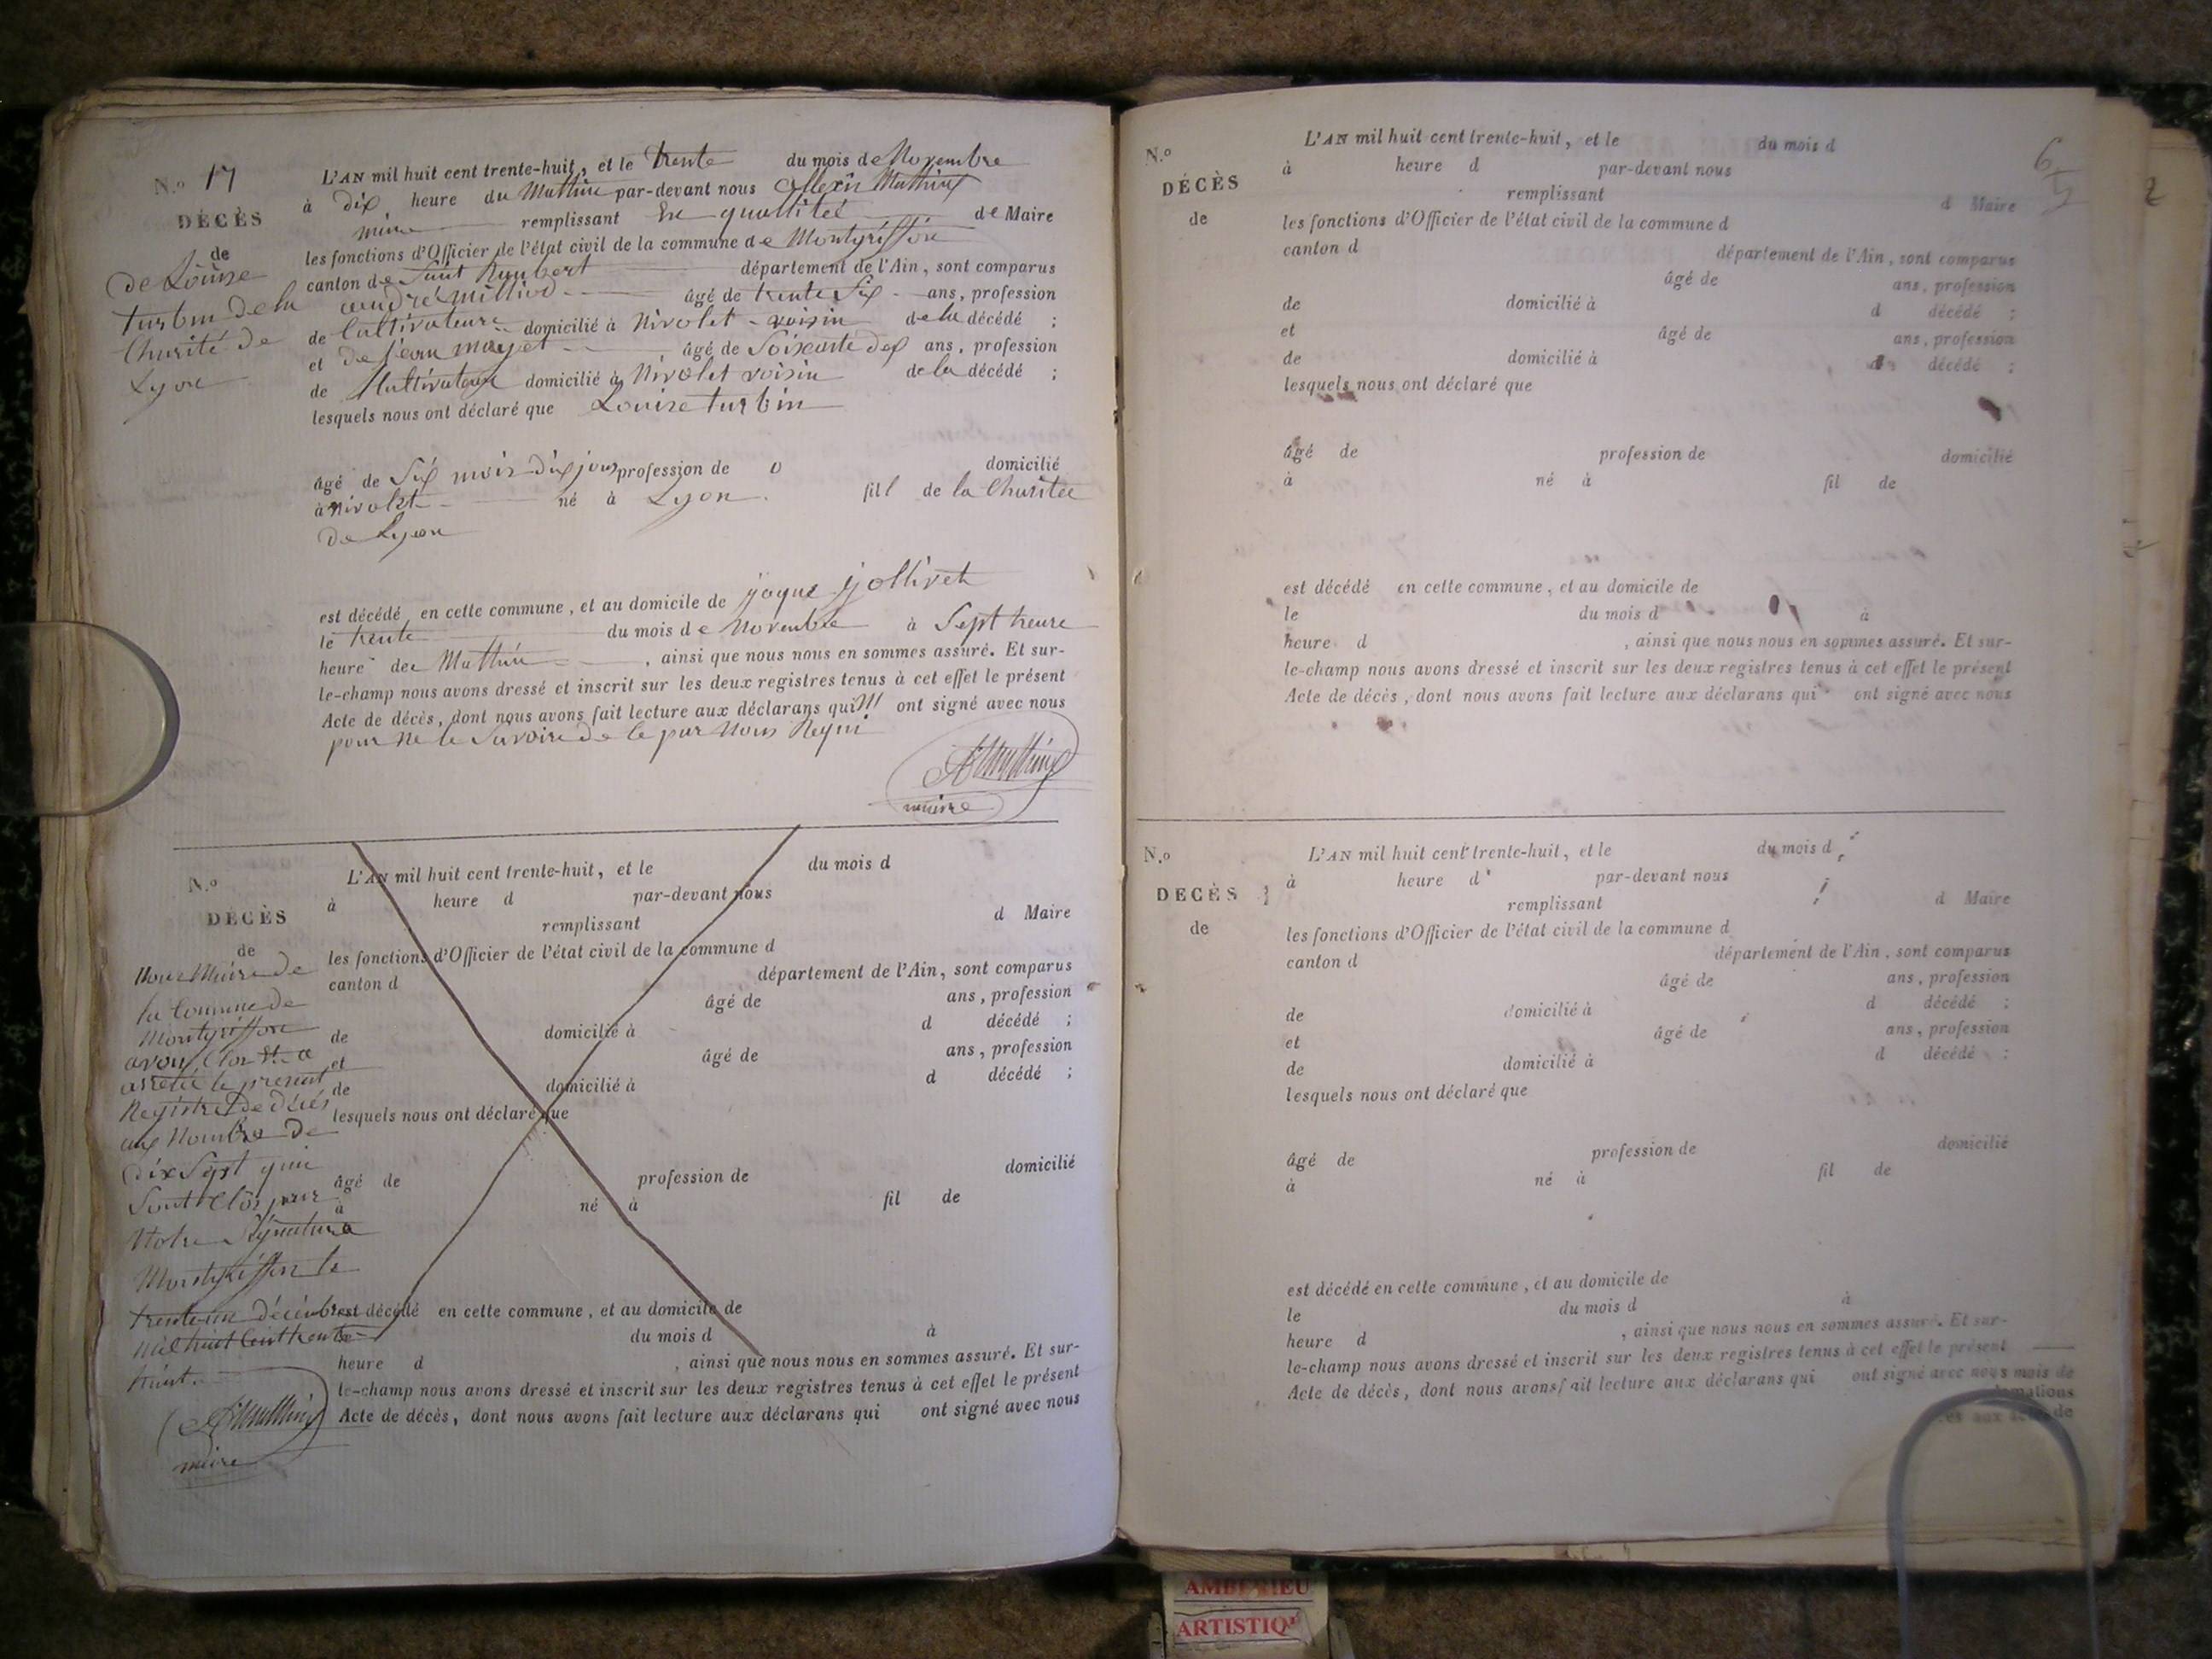 N.o 17
DÉCÈS
de
de Louise
turbin de la
Charité de
Lyon
L'AN mil huit cent trente-huit, et le trente du mois de Novembre
à dix heure du Mathin par-devant nous Allexis Mathieux
mire remplissant En quallitéé de Maire
les fonctions d'Officier de l'état civil de la commune de Montgriffon
canton de Saint Rambert département de l'Ain, sont comparus
andré milliod âgé de trente Six ans, profession
de Cultivateure domicilié à Nivolet - voisin de la décédé ;
et de jean mayet, âgé de Soixante dex ans, profession
de Cultivateur domicilié à Nivolet voisin de la décédé ;
lesquels nous ont déclaré que Louise turbin
âgé de Six mois dix jour profession de 0 domicilié
à nivolet né à Lyon. fill de la Charitée
de Lyon
est décédé en cette commune, et au domicile de jaque jollivet
le trente du mois de Novembre à Sept heure
heure deu Mathin, ainsi que nous nous en sommes assuré. Et sur-
le-champ nous avons dressé et inscrit sur les deux registres tenus à cet effet le présent
Acte de décès, dont nous avons fait lecture aux déclarans qui ont signé avec nous
pour ne le Savoire de ce par Nous Requi
maire
N.o
DÉCÈS
de
Nous Maire de
la Commune de
Montgriffon
avons Clos et a
arretée le present
Registre de décés
aux Nombre de
dix Sept qui
Sont Clos par
Notre Signature
Montgriffon le
trente-un Décembre
mil huit Cent trente
huit.
maire
L'AN mil huit cent trente-huit, et le du mois d
à heure d par-devant nous
remplissant d Maire
les fonctions d'Officier de l'état civil de la commune d
canton d département de l'Ain, sont comparus
âgé de ans, profession
de domicilié à d décédé ;
et âgé de ans, profession
de domicilié à d décédé ;
lesquels nous ont déclaré que
âgé de profession de domicilié
à né à fil de
est décédé en cette commune, et au domicile de
du mois d à
heure d, ainsi que nous nous en sommes assuré. Et sur-
le-champ nous avons dressé et inscrit sur les deux registres tenus à cet effet le présent
Acte de décès, dont nous avons fait lecture aux déclarans qui ont signé avec nous
6
N.o
DÉCÈS
de
L'AN mil huit cent trente-huit, et le du mois d
à heure d par-devant nous
remplissant d Maire
les fonctions d'Officier de l'état civil de la commune d
canton d département de l'Ain, sont comparus
âgé de ans, profession
de domicilié à d décédé ;
et âgé de ans, profession
de domicilié à d décédé ;
lesquels nous ont déclaré que
âgé de profession de domicilié
à né à fil de
est décédé en cette commune, et au domicile de
le du mois d à
heure d, ainsi que nous nous en sommes assuré. Et sur-
le-champ nous avons dressé et inscrit sur les deux registres tenus à cet effet le présent
Acte de décès, dont nous avons fait lecture aux déclarans qui ont signé avec nous
N.o
DÉCÈS
de
L'AN mil huit cent trente-huit, et le du mois d
à heure d par-devant nous
remplissant d Maire
les fonctions d'Officier de l'état civil de la commune d
canton d département de l'Ain, sont comparus
âgé de ans, profession
de domicilié à d décédé ;
et âgé de ans, profession
de domicilié à d décédé ;
lesquels nous ont déclaré que
âgé de profession de domicilié
à né à fil de
est décédé en cette commune, et au domicile de
le du mois d à
heure d, ainsi que nous nous en sommes assuré. Et sur-
le-champ nous avons dressé et inscrit sur les deux registres tenus à cet effet le présent
Acte de décès, dont nous avons fait lecture aux déclarans qui ont signé avec nous mois de
AMBÉRIEU
ARTISTIQU